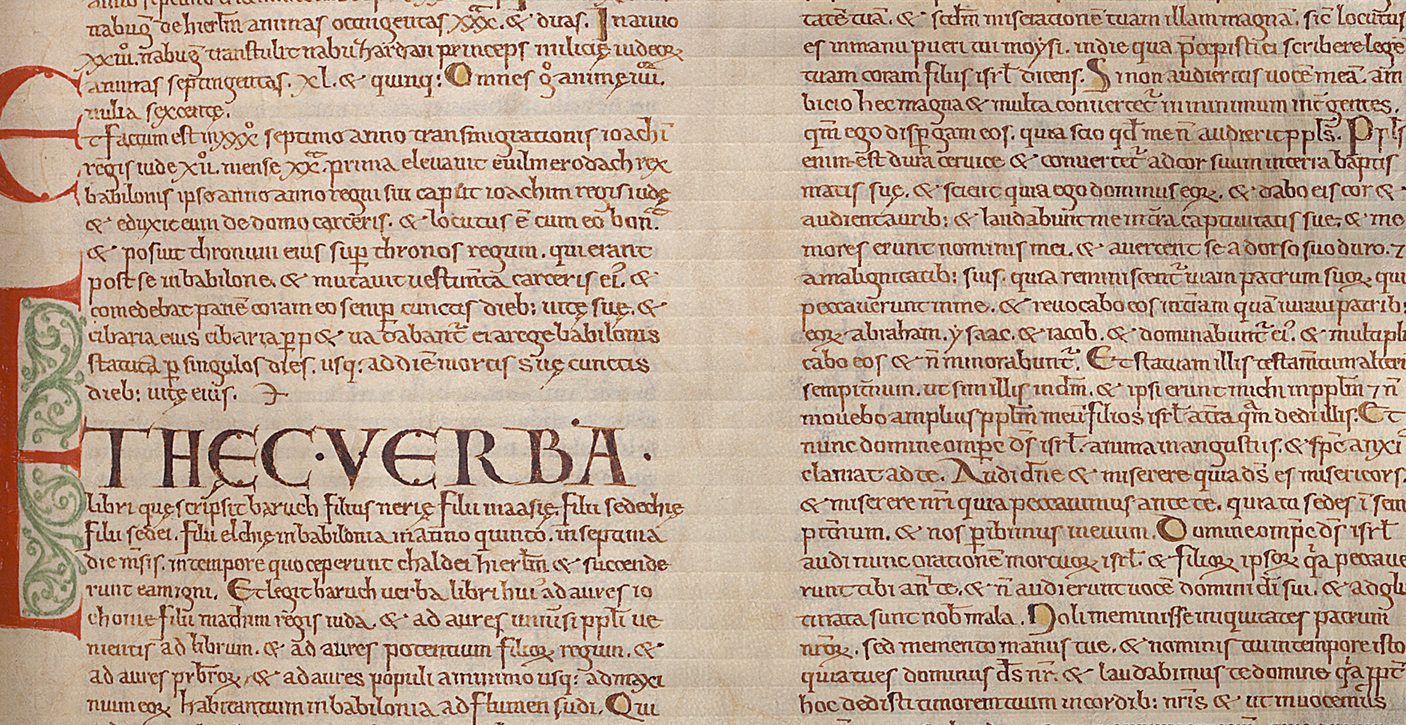 nabuḡ de hierłm animas octingentas xxx. & duas. In anno
xxiii. nabuḡ transtulit nabuzardan princeps milicię iudeoꝝ
animas septingentas. xl. & quinq;. Omnes g̊ animę iiii.
milia sexcentę.
Et factum est in xxx septimo anno transmigrationis ioachī
regis iude xii. mense xx. prima eleuauit euilmerodach rex
babilonis ipso anno anno regni sui caput ioachim regis iudę
& eduxit eum de domo carceris. & locutus ē cum eo bona.
& posuit thronum eius sup thronos regum. qui erant
post se in babilone. & mutauit uestimta carceris eiꝰ. &
comedebat panē coram eo semp cunctis dieb; uitę suę. &
cibaria eius cibaria ꝑpetua dabantᷣ ei a rege babilonis
statuta ꝑ singulos dies. usq; ad diē mortis suę cunctis
dieb; uitę eius.
ET HĘC·VERBA·
libri quę scripsit baruch filius nerię filii maasię. filii sedechię
filii sedei. filii elchię in babilonia in anno quinto. in septima
die mēsis. in tempore quo ceperunt chaldei hierłm & succende
runt eam igni. Et legit baruch uerba libri huiꝰ ad aures io
chonie filii machim regis iuda. & ad aures uniūsi ppłi ue
nientis ad librum. & ad aures potentium filioꝝ regum. &
ad aures prbroꝝ. & ad aures populi a minimo usq; ad maxi
mum eoꝝ habitantium in babilonia ad flumen sudi. Qui
tatē tuā. & scdm miseratione tuam illam magnā. sic̄ locutus
es in manu pueri tui moysi. in die qua p̄cepisti ei scribere legē
tuam coram filiis isrł dicens. Si non audieritis uocē meā. am
bicio hec magna & multa conuertetᷣ in minimum int gentes.
qm̄ ego dispgam eos. quia scio qd me n̄ audierit ppłs. Ppłs
enim est dura ceruice & conuertetᷣ ad cor suum in terra captiui
tatis suę. & scient quia ego dominus eoꝝ. & dabo eis cor &
audient aurib; & laudabunt me in tra captiuitatis sue. & me
mores erunt nominis mei. & auertent se a dorso suo duro. ⁊
a malignitatib; suis. quia reminiscentᷣ uiam patrum suoꝝ qui
peccauerunt in me. & reuocabo eos in tram quā iuraui patrib;
eoꝝ abraham. ysaac. & iacob. & dominabuntᷣ eiꝰ. & multipli
cabo eos & n̄ minorabuntᷣ. Et statuam illis testamtum alteri
sempitnum. ut sim illis in dm̄. & ipsi erunt michi in ppłm ⁊ n̄
mouebo amplius ppłm meū filios isrł a tra qm̄ dedi illis. Et
nunc domine omp̄c ds isrł. anima in angustiis. & spc̄ anxi
clamat ad te. Audi dn̄e & miserere quia ds̄ es misericors.
& miserere nr̄i quia peccauimus ante te. quia tu sedes ī sem
pitnum. & nos pibimus in euum. Domine omp̄c ds̄ isrł
audi nunc orationē mortuoꝝ isrł. & filioꝝ ipsoꝝ qa peccaue
runt tibi an̄ te. & n̄ audierunt uocē domini di sui. & adglu
tinata sunt nob mala. Noli meminisse iniquitates patrum
nr̄oꝝ. sed memento manus tue. & nominis tui in tempore isto
quia tu es dominus ds̄ nr̄. & laudabimus te domine qa ppt
hoc dedisti timorem tuum in cordib; nr̄is & ut inuocemus